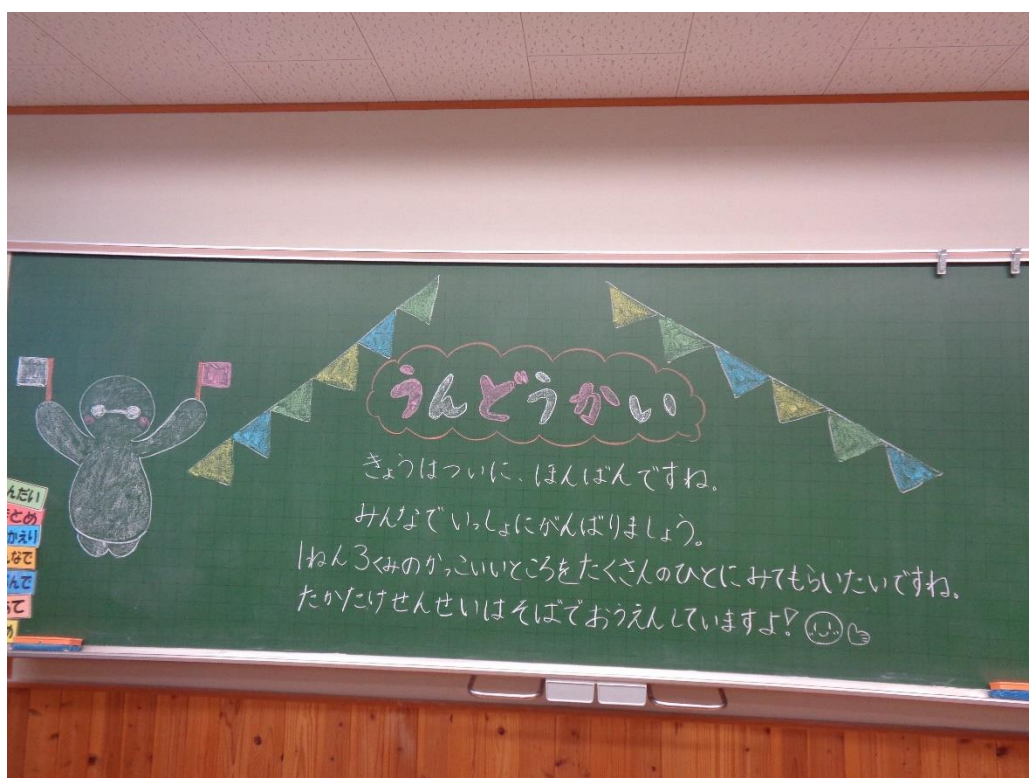 うんどうかい
きょうはついに、ほんばんですね。
みんなでいっしょにがんばりましょう。
1ねん3くみのかっこいいところをたくさんのひとにみてもらいたいですね。
たかたけせんせいはそばでおうえんしていますよ!
んだい
とめ
かえり
なで
んで
って
め